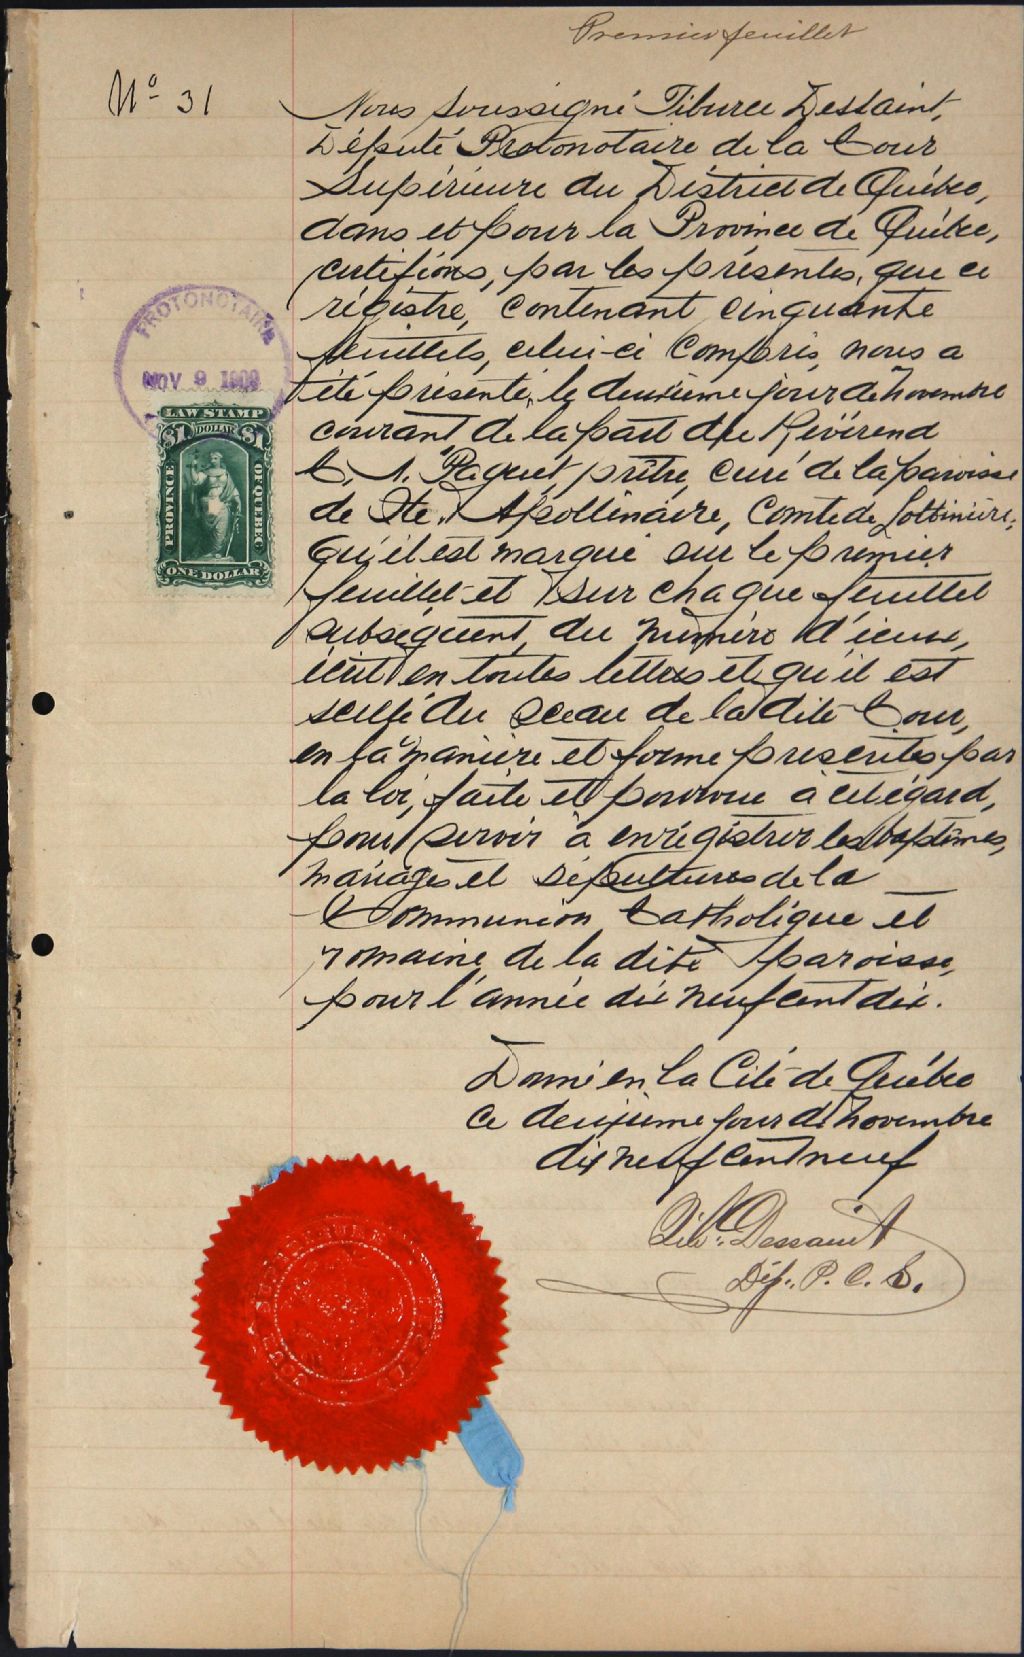 Premier feuillet
No 31
Nous soussigné Tiburce Dessaint,
Député Protonotaire de la Cour
Supérieure du District de Québec,
dans et pour la Province de Québec,
certifions, par les présentes, que ce
régistre, contenant cinquante
feuillets, celui-ci compris, nous a
été présenté, le deuxième jour de Novembre
courant, de la part du Révérend
Paquet, prêtre, curé de la paroisse
de Ste. Apollinaire, Comté de Lotbinière;
Qu'il est marqué sur le premier
feuillet et sur chaque feuillet
subséquent, du numéro d'iceux,
écrit en toutes lettres et qu'il est
scellé du sceau de la dite Cour,
en la manière et forme prescrites par
la loi, faite et pourvue à cet égard,
pour servir à enrégistrer les baptêmes,
mariages et sépultures de la
Communion Catholique et
romaine de la dite paroisse,
pour l'année dix neuf cent dix.
Donné en la Cité de Québec
ce deuxième jour de Novembre
dix neuf cent neuf
Tib. Dessaint
Dép. P. C. S.
PROTONOTAIRE
NOV 9 1909
LAW STAMP
$1 DOLLAR $1
PROVINCE
OF QUEBEC
ONE DOLLAR